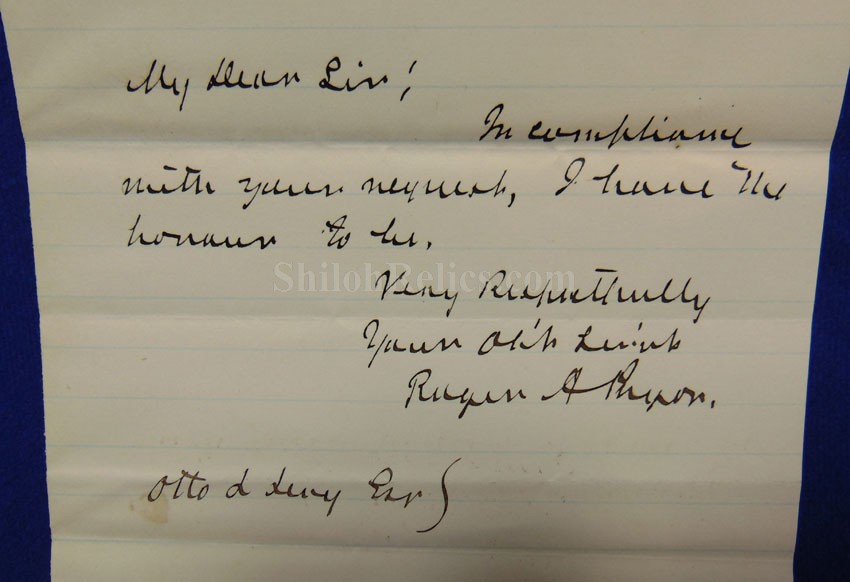 My Dear Sir!
In compliance
with your request, I have the
honour to be,
ShilohRelics.com
Very Respectfully
Your Ob't Serv't
Roger A Pryor.
Otto Levy Esq